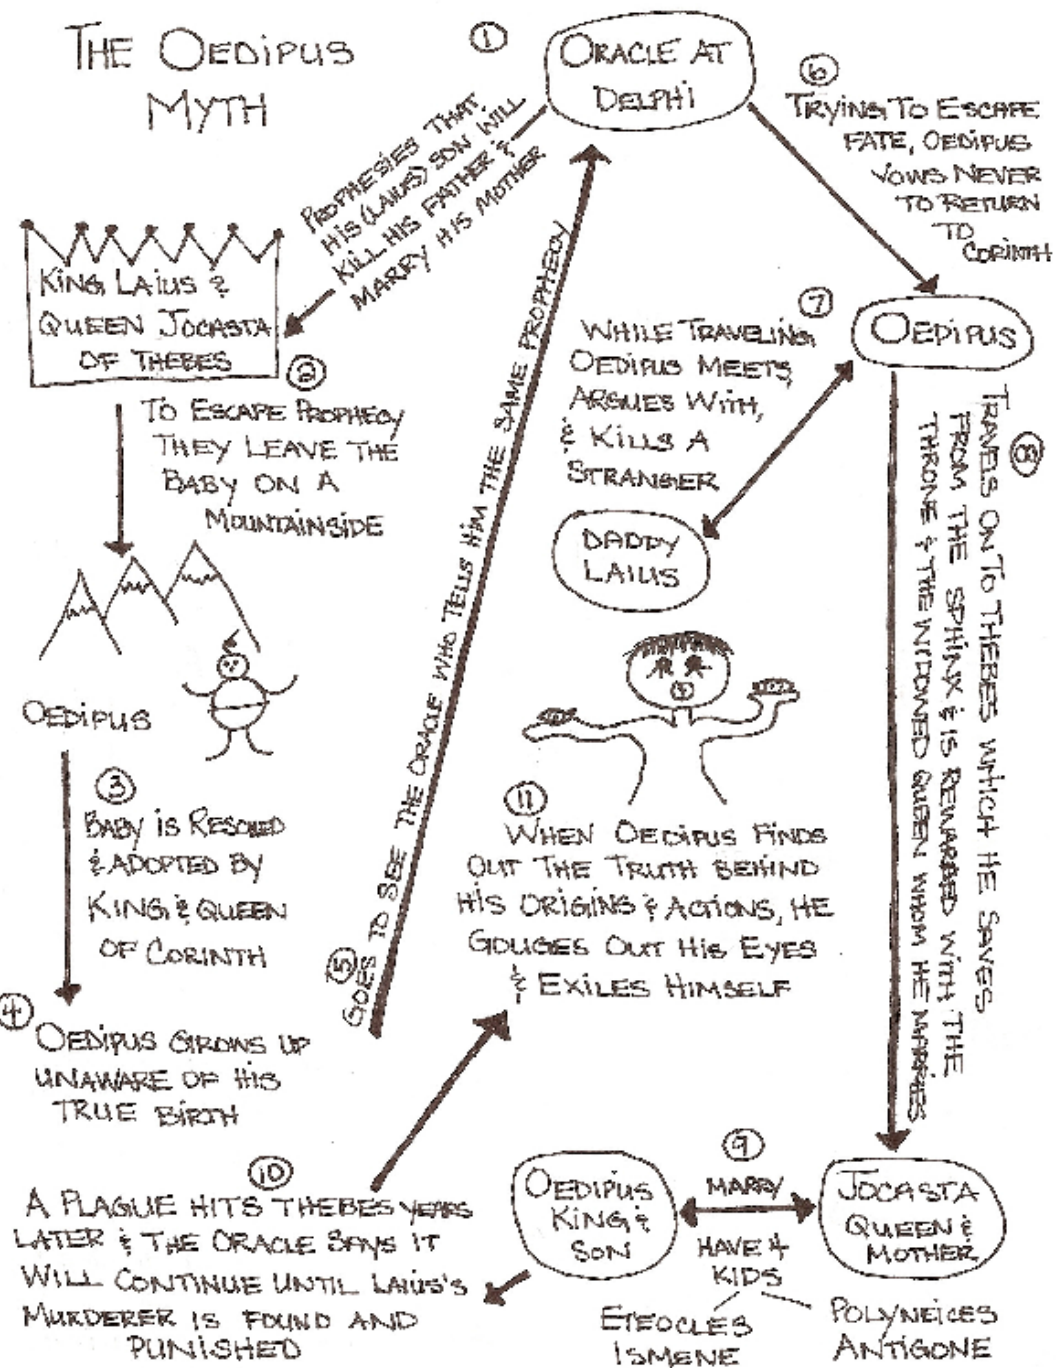 THE OEDIPUS
MYTH
①
ORACLE AT
DELPHI
PROPHESIES THAT
HIS (LAIUS) SON WILL
KILL HIS FATHER &
MARRY HIS MOTHER
KING LAIUS &
QUEEN JOCASTA
OF THEBES
②
TO ESCAPE PROPHECY
THEY LEAVE THE
BABY ON A
MOUNTAINSIDE
OEDIPUS
③
BABY IS RESCUED
& ADOPTED BY
KING & QUEEN
OF CORINTH
④
OEDIPUS GROWS UP
UNAWARE OF HIS
TRUE BIRTH
⑤
GOES TO SEE THE ORACLE WHO TELLS HIM THE SAME PROPHECY
⑥
TRYING TO ESCAPE
FATE, OEDIPUS
VOWS NEVER
TO RETURN
TO
CORINTH
OEDIPUS
⑦
WHILE TRAVELING
OEDIPUS MEETS,
ARGUES WITH,
& KILLS A
STRANGER
DADDY
LAIUS
⑧
TRAVELS ON TO THEBES WHICH HE SAVES
FROM THE SPHINX & IS REWARDED WITH THE
THRONE & THE WIDOWED QUEEN WHOM HE MARRIES
⑨
MARRY
OEDIPUS
KING &
SON
JOCASTA
QUEEN &
MOTHER
HAVE 4
KIDS
ETEOCLES
ISMENE
POLYNEICES
ANTIGONE
⑩
A PLAGUE HITS THEBES YEARS
LATER & THE ORACLE SAYS IT
WILL CONTINUE UNTIL LAIUS'S
MURDERER IS FOUND AND
PUNISHED
⑪
WHEN OEDIPUS FINDS
OUT THE TRUTH BEHIND
HIS ORIGINS & ACTIONS, HE
GOUGES OUT HIS EYES
& EXILES HIMSELF